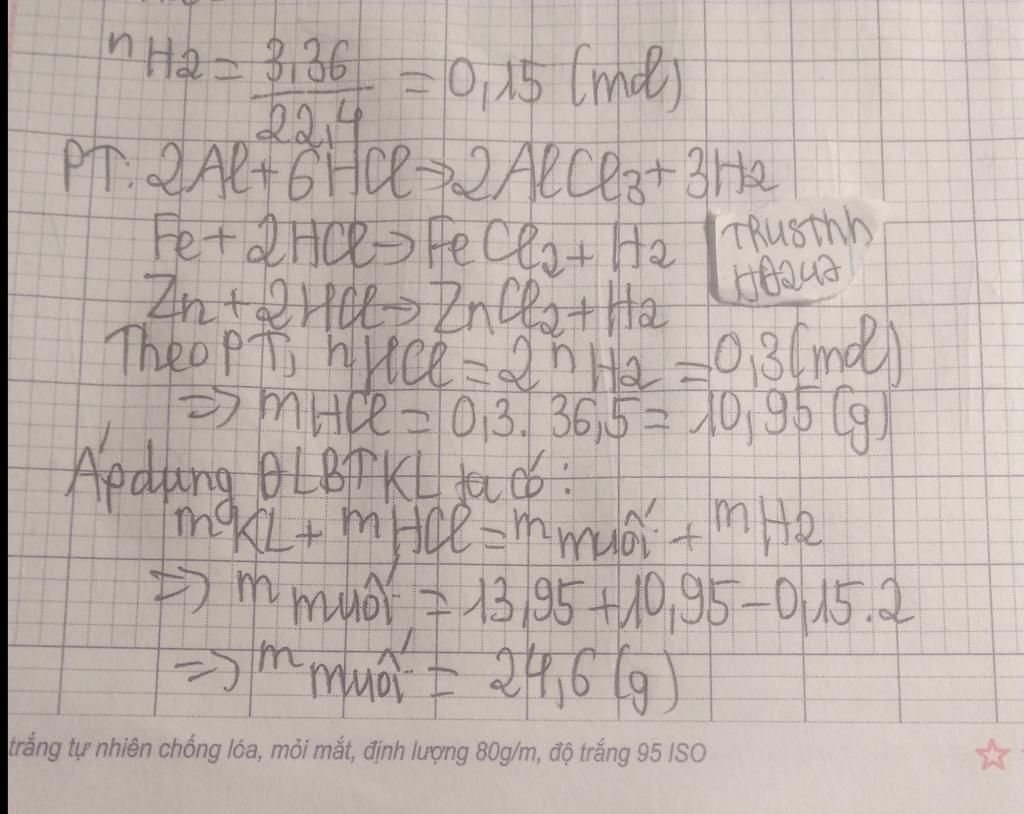 nH2 = 3,36/22,4 = 0,15 (mol)
PT: 2Al + 6HCl → 2AlCl3 + 3H2
Fe + 2HCl → FeCl2 + H2
TRUSThh
Zn + 2HCl → ZnCl2 + H2
Theo PT, nHCl = 2nH2 = 0,3 (mol)
=> mHCl = 0,3. 36,5 = 10,95 (g)
Áp dụng ĐLBTKL ta có:
mKL + mHCl = mmuối + mH2
=> mmuối = 13,95 + 10,95 - 0,15.2
=> mmuối = 24,6 (g)
trắng tự nhiên chống lóa, mỏi mắt, định lượng 80g/m, độ trắng 95 ISO